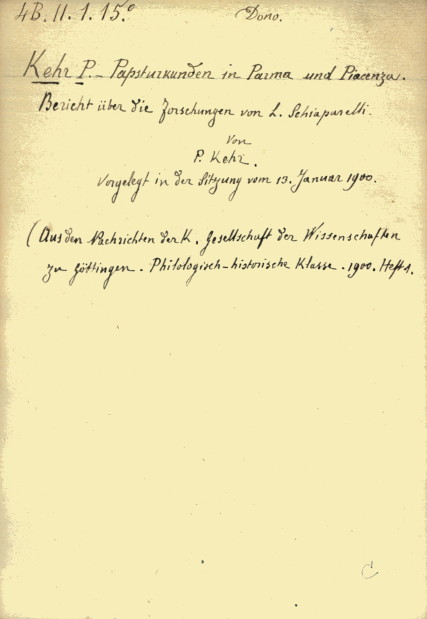 4B. II. 1. 15.° Dono.
Kehr P. - Papsturkunden in Parma und Piacenza.
Bericht über die Forschungen von L. Schiaparelli.
Von
P. Kehr.
Vorgelegt in der Sitzung vom 13. Januar 1900.
(Aus den Nachrichten der K. Gesellschaft der Wissenschaften
zu Göttingen. Philologisch-historische Klasse. 1900. Heft 1.
C